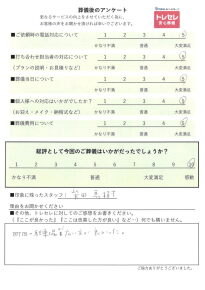 葬儀後のアンケート
更なるサービスの向上をさせていただく為に、
お客様の声をお聞かせを頂ければ幸いでございます。
トレセレ
安心葬儀
■ご依頼時の電話対応について 1 2 3 4 5
かなり不満 普通 大変満足
■打ち合わせ担当者の対応について 1 2 3 4 5
(プランの説明・お見積りなど) かなり不満 普通 大変満足
■葬儀当日について 1 2 3 4 5
かなり不満 普通 大変満足
■故人様への対応はいかがでしたか? 1 2 3 4 5
(お迎え・メイク・納棺式など) かなり不満 普通 大変満足
■葬儀費用について 1 2 3 4 5
かなり不満 普通 大変満足
総評として今回のご葬儀はいかがだったでしょうか?
1 2 3 4 5 6 7 8 9 10
かなり不満 普通 大変満足 感動
■印象に残ったスタッフ:
理由をお聞かせください
■その他、トレセレに対してのご感想をお書きください。
(『ここが良かった』『ここは改善した方が良い』など…)何でも構いません。
ご協力ありがとうございました。